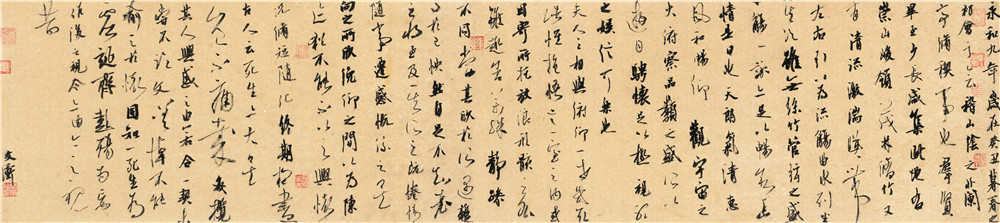 永和九年歲在癸丑暮春
初會于會稽山陰之蘭
亭脩禊事也群賢
畢至少長咸集此地有
崇山峻領茂林脩竹又
有清流激湍暎帶
左右引以為流觴曲水列坐
其次雖無絲竹管絃之盛
一觴一詠亦足以暢敘幽
情是日也天朗氣清惠
風和暢仰觀宇宙之
大俯察品類之盛所以
遊目騁懷足以極視聽
之娛信可樂也
夫人之相與俯仰一世或取
諸懷抱悟言一室之內或
因寄所託放浪形骸之外
雖趣舍萬殊靜躁
不同當其欣於所遇暫
得於己快然自足不知老
之將至及其所之既惓情
隨事遷感慨係之矣
向之所欣俛仰之間以為陳
迹猶不能不以之興懷
況脩短隨化終期於盡
古人云死生亦大矣
豈不痛哉每攬
昔人興感之由若合一契未
嘗不臨文嗟悼不能
喻之於懷固知一死生為
虛誕齊彭殤為妄
作後之視今亦由今之視
昔